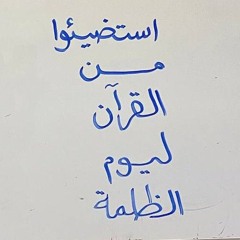 استضيئوا
من
القرآن
ليوم
الظلمة